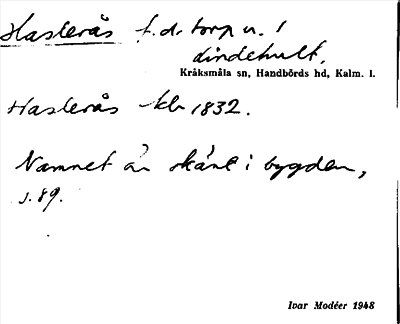 Hasterås f.d. torp u. 1
Lindehult.
Kråksmåla sn, Handbörds hd, Kalm. l.
Hasterås kb 1832.
Namnet är känt i bygden,
s. 89.
Ivar Modéer 1948